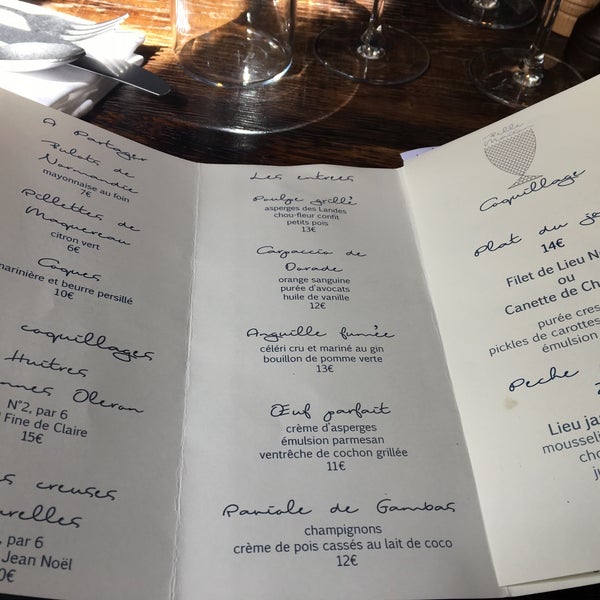 A Partager
Bulots de
Normandie
mayonnaise au foin
7€
Rillettes de
Maquereau
citron vert
6€
Coques
marinière et beurre persillé
10€
coquillages
Huîtres
Oleron
N°2, par 6
Fine de Claire
15€
creuses
par 6
Jean Noël
Les entrees
Poulpe grillé
asperges des Landes
chou-fleur confit
petits pois
13€
Carpaccio de
Dorade
orange sanguine
purée d'avocats
huile de vanille
12€
Anguille fumée
céléri cru et mariné au gin
bouillon de pomme verte
13€
Œuf parfait
crème d'asperges
émulsion parmesan
ventrêche de cochon grillée
11€
Raviole de Gambas
champignons
crème de pois cassés au lait de coco
12€
Belle
Maison
Coquillage
Plat du
14€
Filet de Lieu
ou
Canette de
purée
pickles de carottes
émulsion
Peche
Lieu